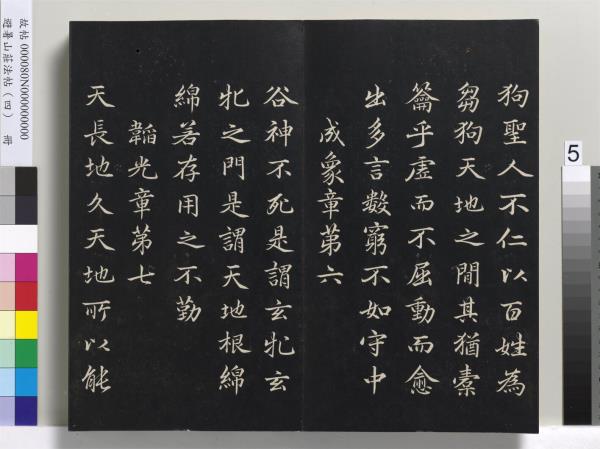 狗聖人不仁以百姓為
芻狗天地之間其猶橐
籥乎虛而不屈動而愈
出多言數窮不如守中
成象章第六
谷神不死是謂玄牝玄
牝之門是謂天地根綿
綿若存用之不勤
韜光章第七
天長地久天地所以能
故帖000080N000000000
避暑山莊法帖（四） 冊
5